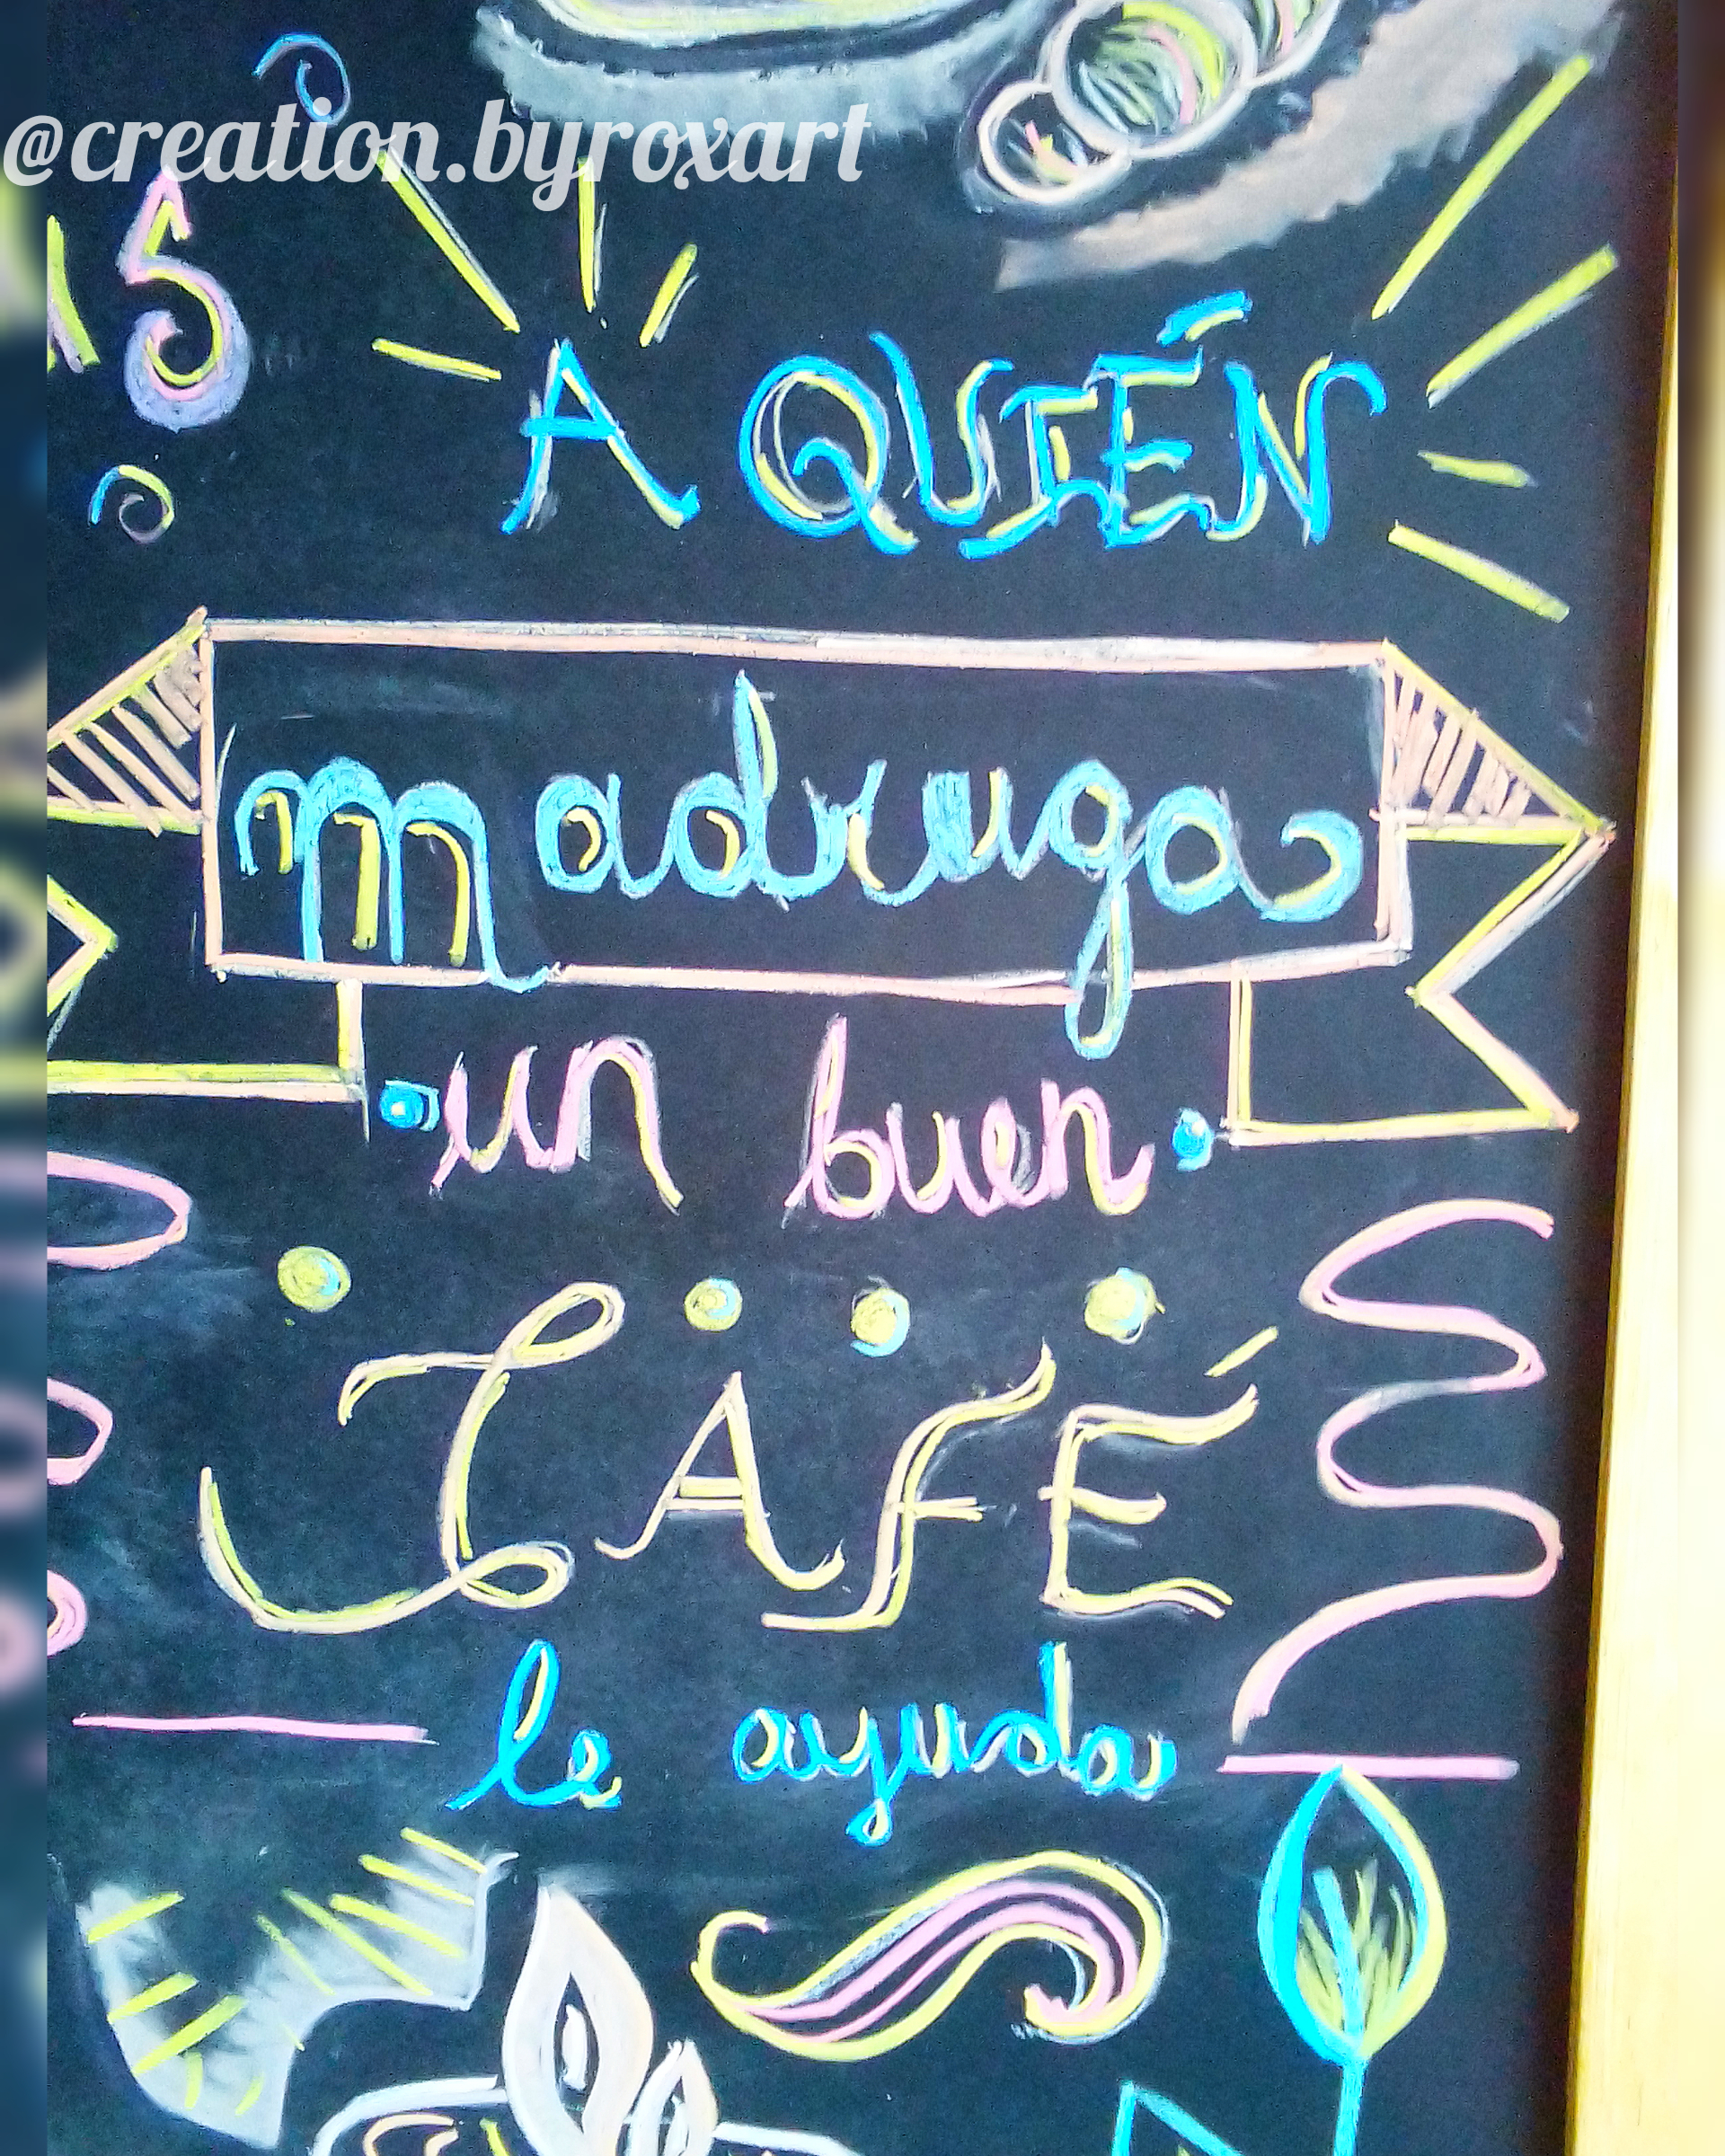 @creation.byroxart
A QUIÉN
madruga
un buen
CAFÉ
le ayuda